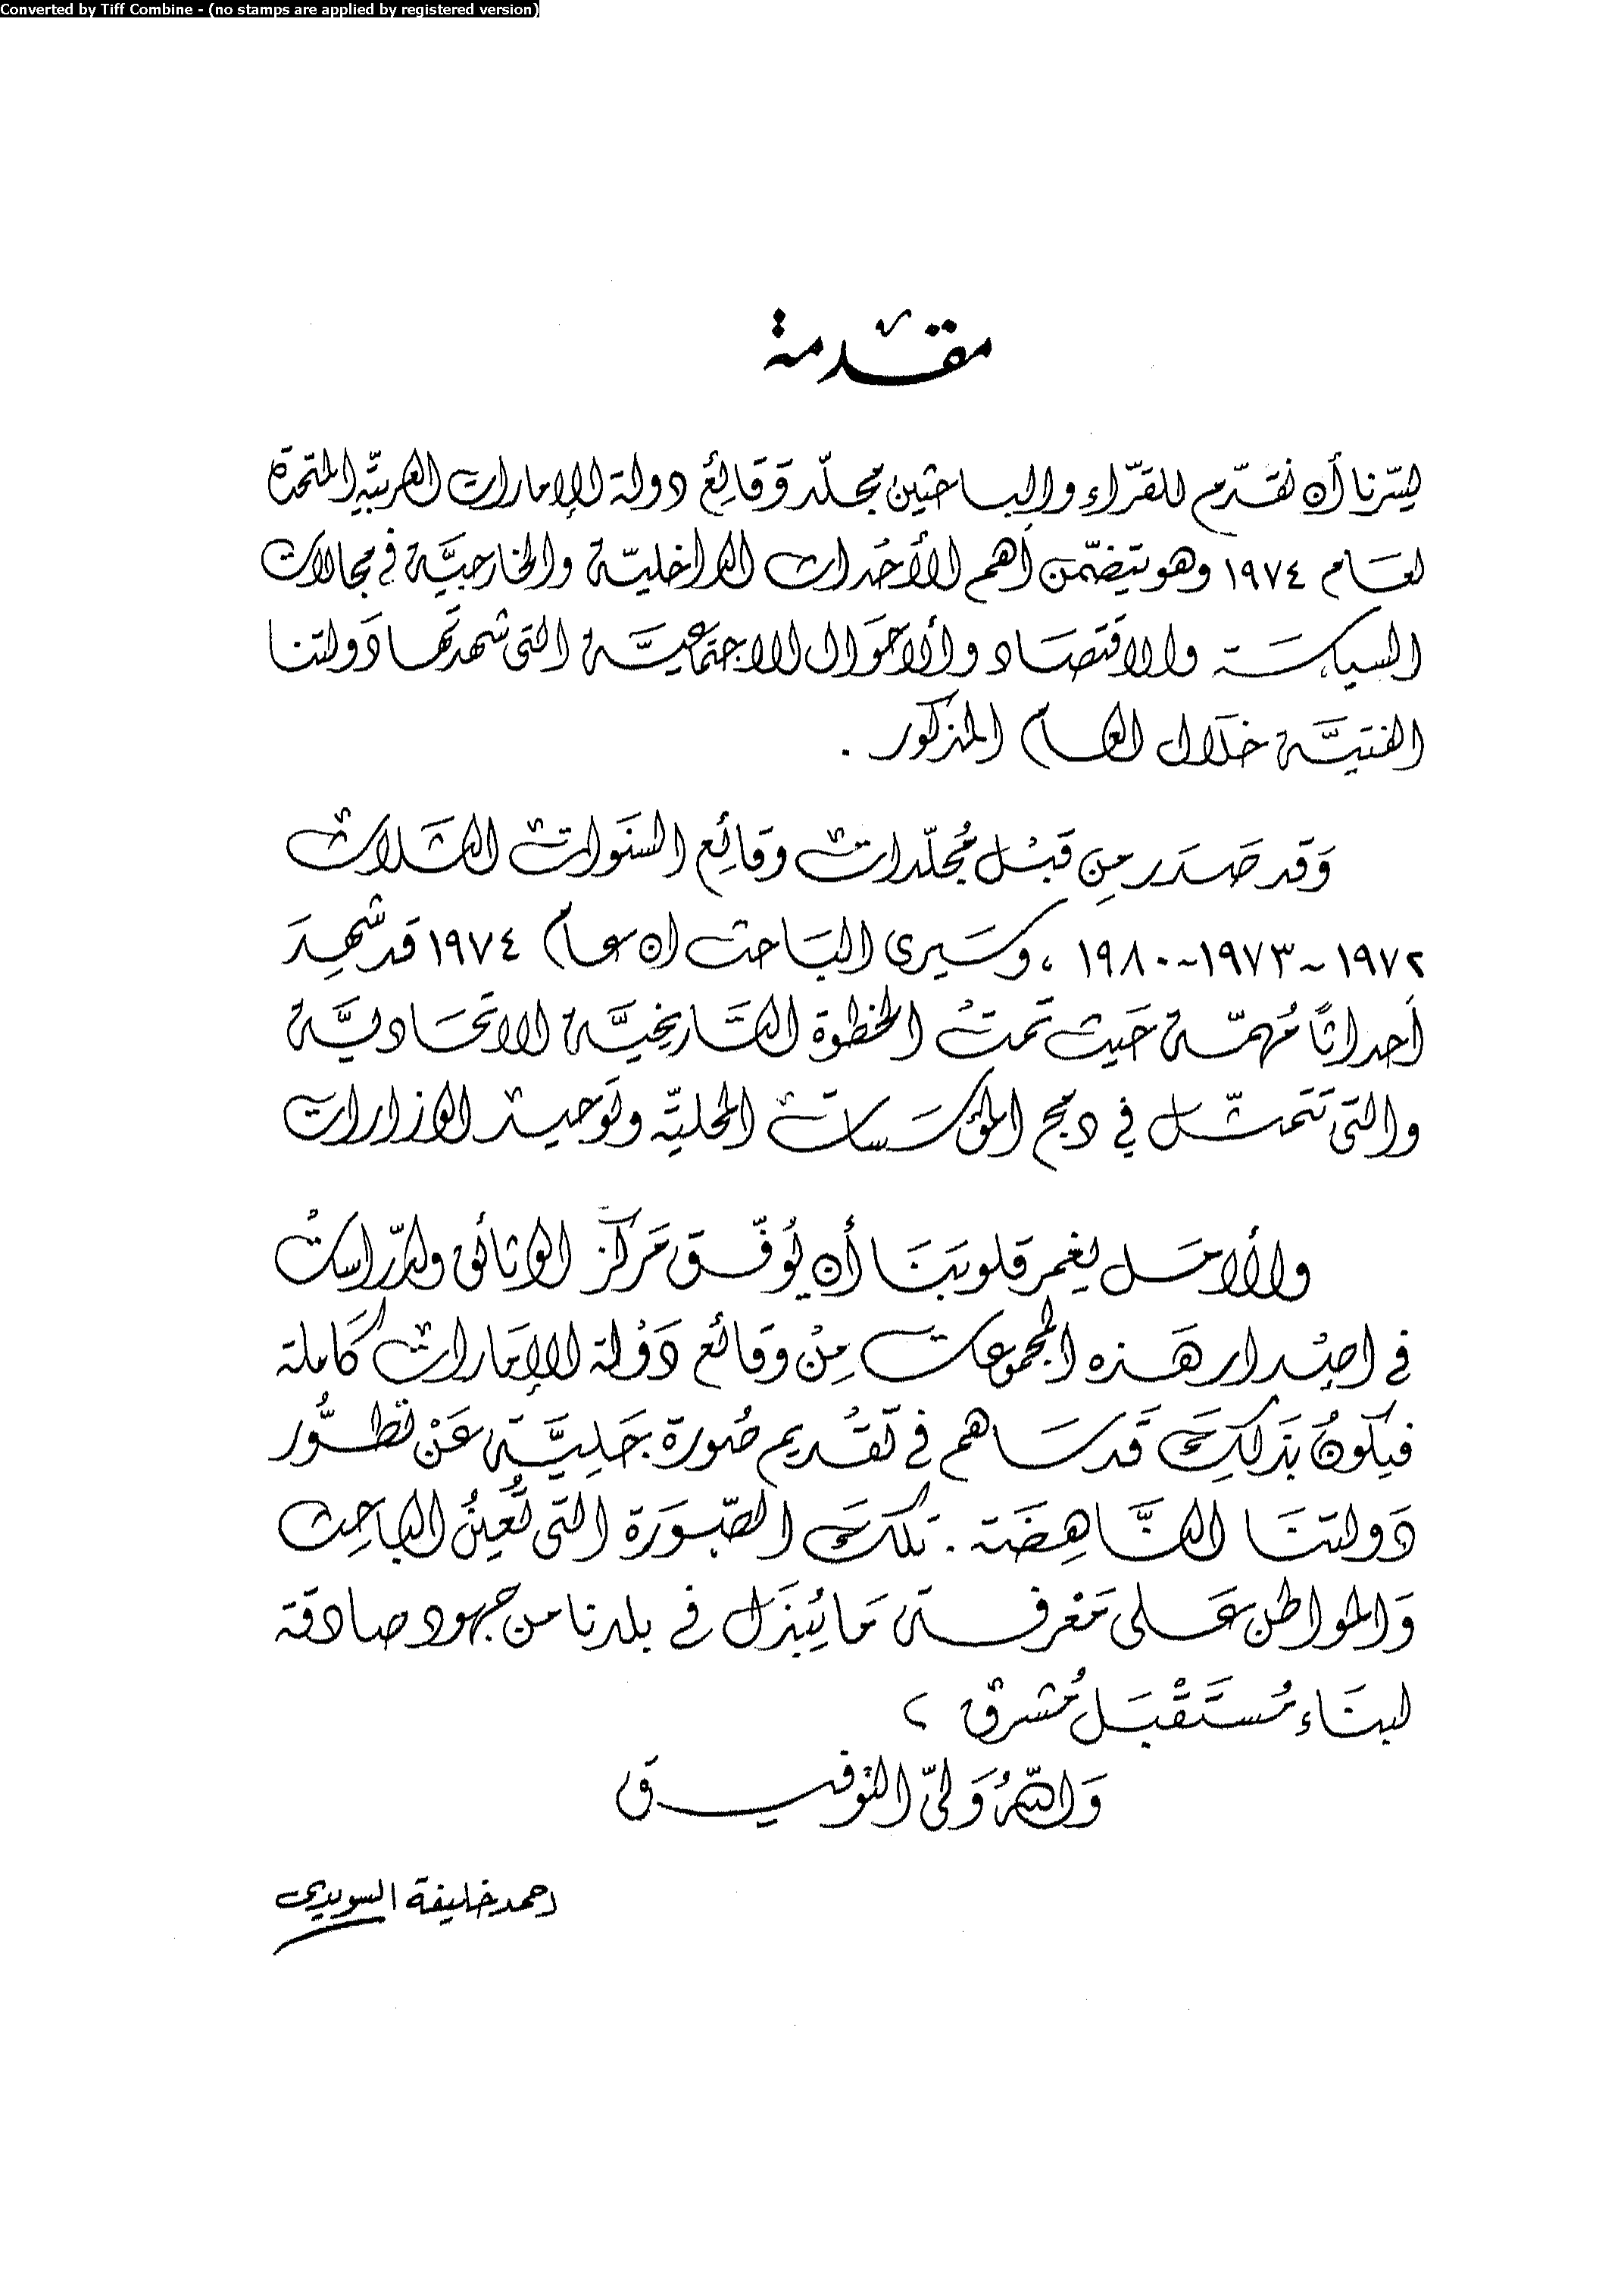 Converted by Tiff Combine - (no stamps are applied by registered version)
مقدمة
يسّرنا أن نقدّم للقرّاء والباحثين مجلّد وَقائِع دولة الإمارات العربيّة المتحدة
لعَام ١٩٧٤ وهو يتضمّن أهم الأحْداث الداخليّة والخارجيَّة في مجالات
السياسَة والاقتصَاد والأحوَال الاجتماعيَّة التي شهدتها دَولتنا
الفتيَّة خلَال العام المذكور .
وَقد صَدَر مِن قَبْل مُجلّدات وقَائِع السنَوات الثَلاث
١٩٧٢ ~ ١٩٧٣ ~ ١٩٨٠ ، وسَيرى البَاحث ان عام ١٩٧٤ قد شهِدَ
أحداثًا مُهمّة حَيث تمّتْ الخطوة التَّاريخيَّة الاتحَاديَّة
والتي تَتَمثّل في دمج المؤسَسات المحليَّة وتَوحيد الوزارات
والأمَل يغمر قلوبَنَا أن يُوفّق مَركز الوثائق والدّراسات
في إصْدار هَذه المجموعات مِنْ وَقائع دَوْلة الإمَارات كَاملة
فيكونُ بذَلِكَ قَد سَاهم في تَقْديم صُورة جَلِيَّة عَنْ تطوُّر
دَولتنَا النَّاهِضَة . تلكَ الصّورَة التي تُعينُ الباحِث
وَالمواطن عَلى مَعرفة مَا يُبذَل في بلدنا من جهود صادقة
لبنَاء مُستَقْبَل مُشرق ،
وَاللّهُ وَليّ التوفيق
احمد خليفة السويدي